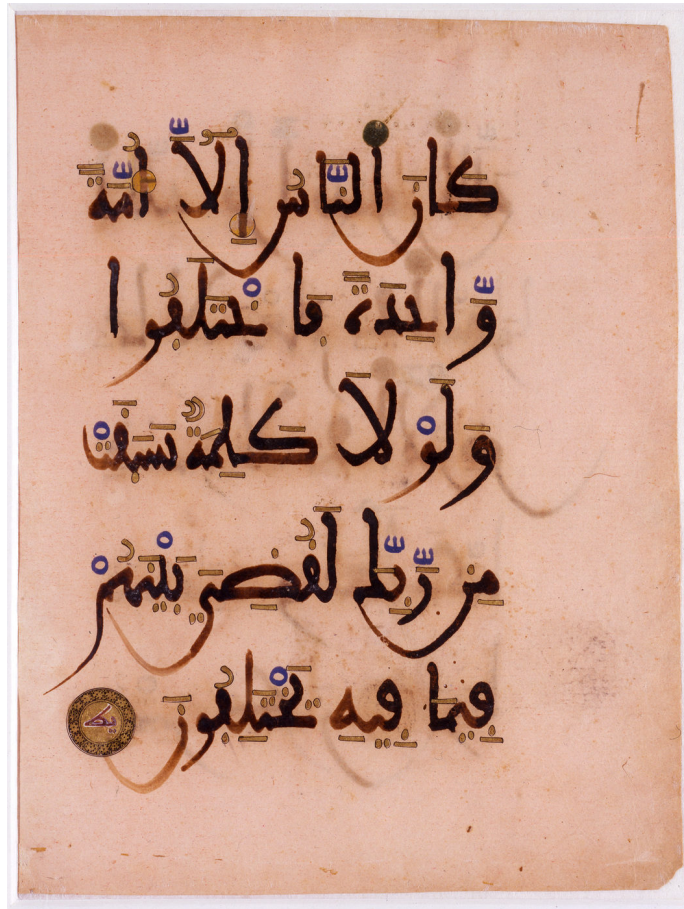 كَانَ اَلنَّاسُ إِلَّا أُمَّةً
وَّاحِدَةً فَاخْتَلَفُوا
وَلَوْلَا كَلِمَةٌ سَبَقَتْ
مِن رَّبِّكَ لَقُضِيَ بَيْنَهُمْ
فِيمَا فِيهِ يَخْتَلِفُونَ